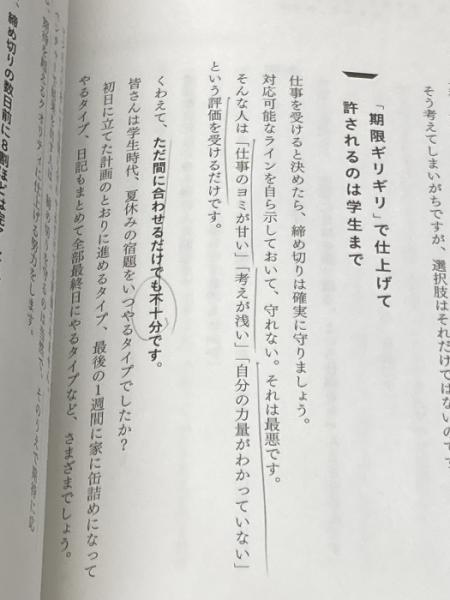 そう考えてしまいがちですが、選択肢はそれだけではないのです
「期限ギリギリ」で仕上げて
許されるのは学生まで
仕事を受けると決めたら、締め切りは確実に守りましょう。
対応可能なラインを自ら示しておいて、守れない。それは最悪です。
そんな人は「仕事のヨミが甘い」「考えが浅い」「自分の力量がわかっていない」
という評価を受けるだけです。
くわえて、ただ間に合わせるだけでも不十分です。
皆さんは学生時代、夏休みの宿題をいつやるタイプでしたか？
初日に立てた計画のとおりに進めるタイプ、最後の1週間に家に缶詰めになって
やるタイプ、日記もまとめて全部最終日にやるタイプなど、さまざまでしょう。
締め切りを守るのは当然で、そのうえで期待に応
超えるクオリティに仕上げる努力をします。
、締め切りの数日前に8割ほどは